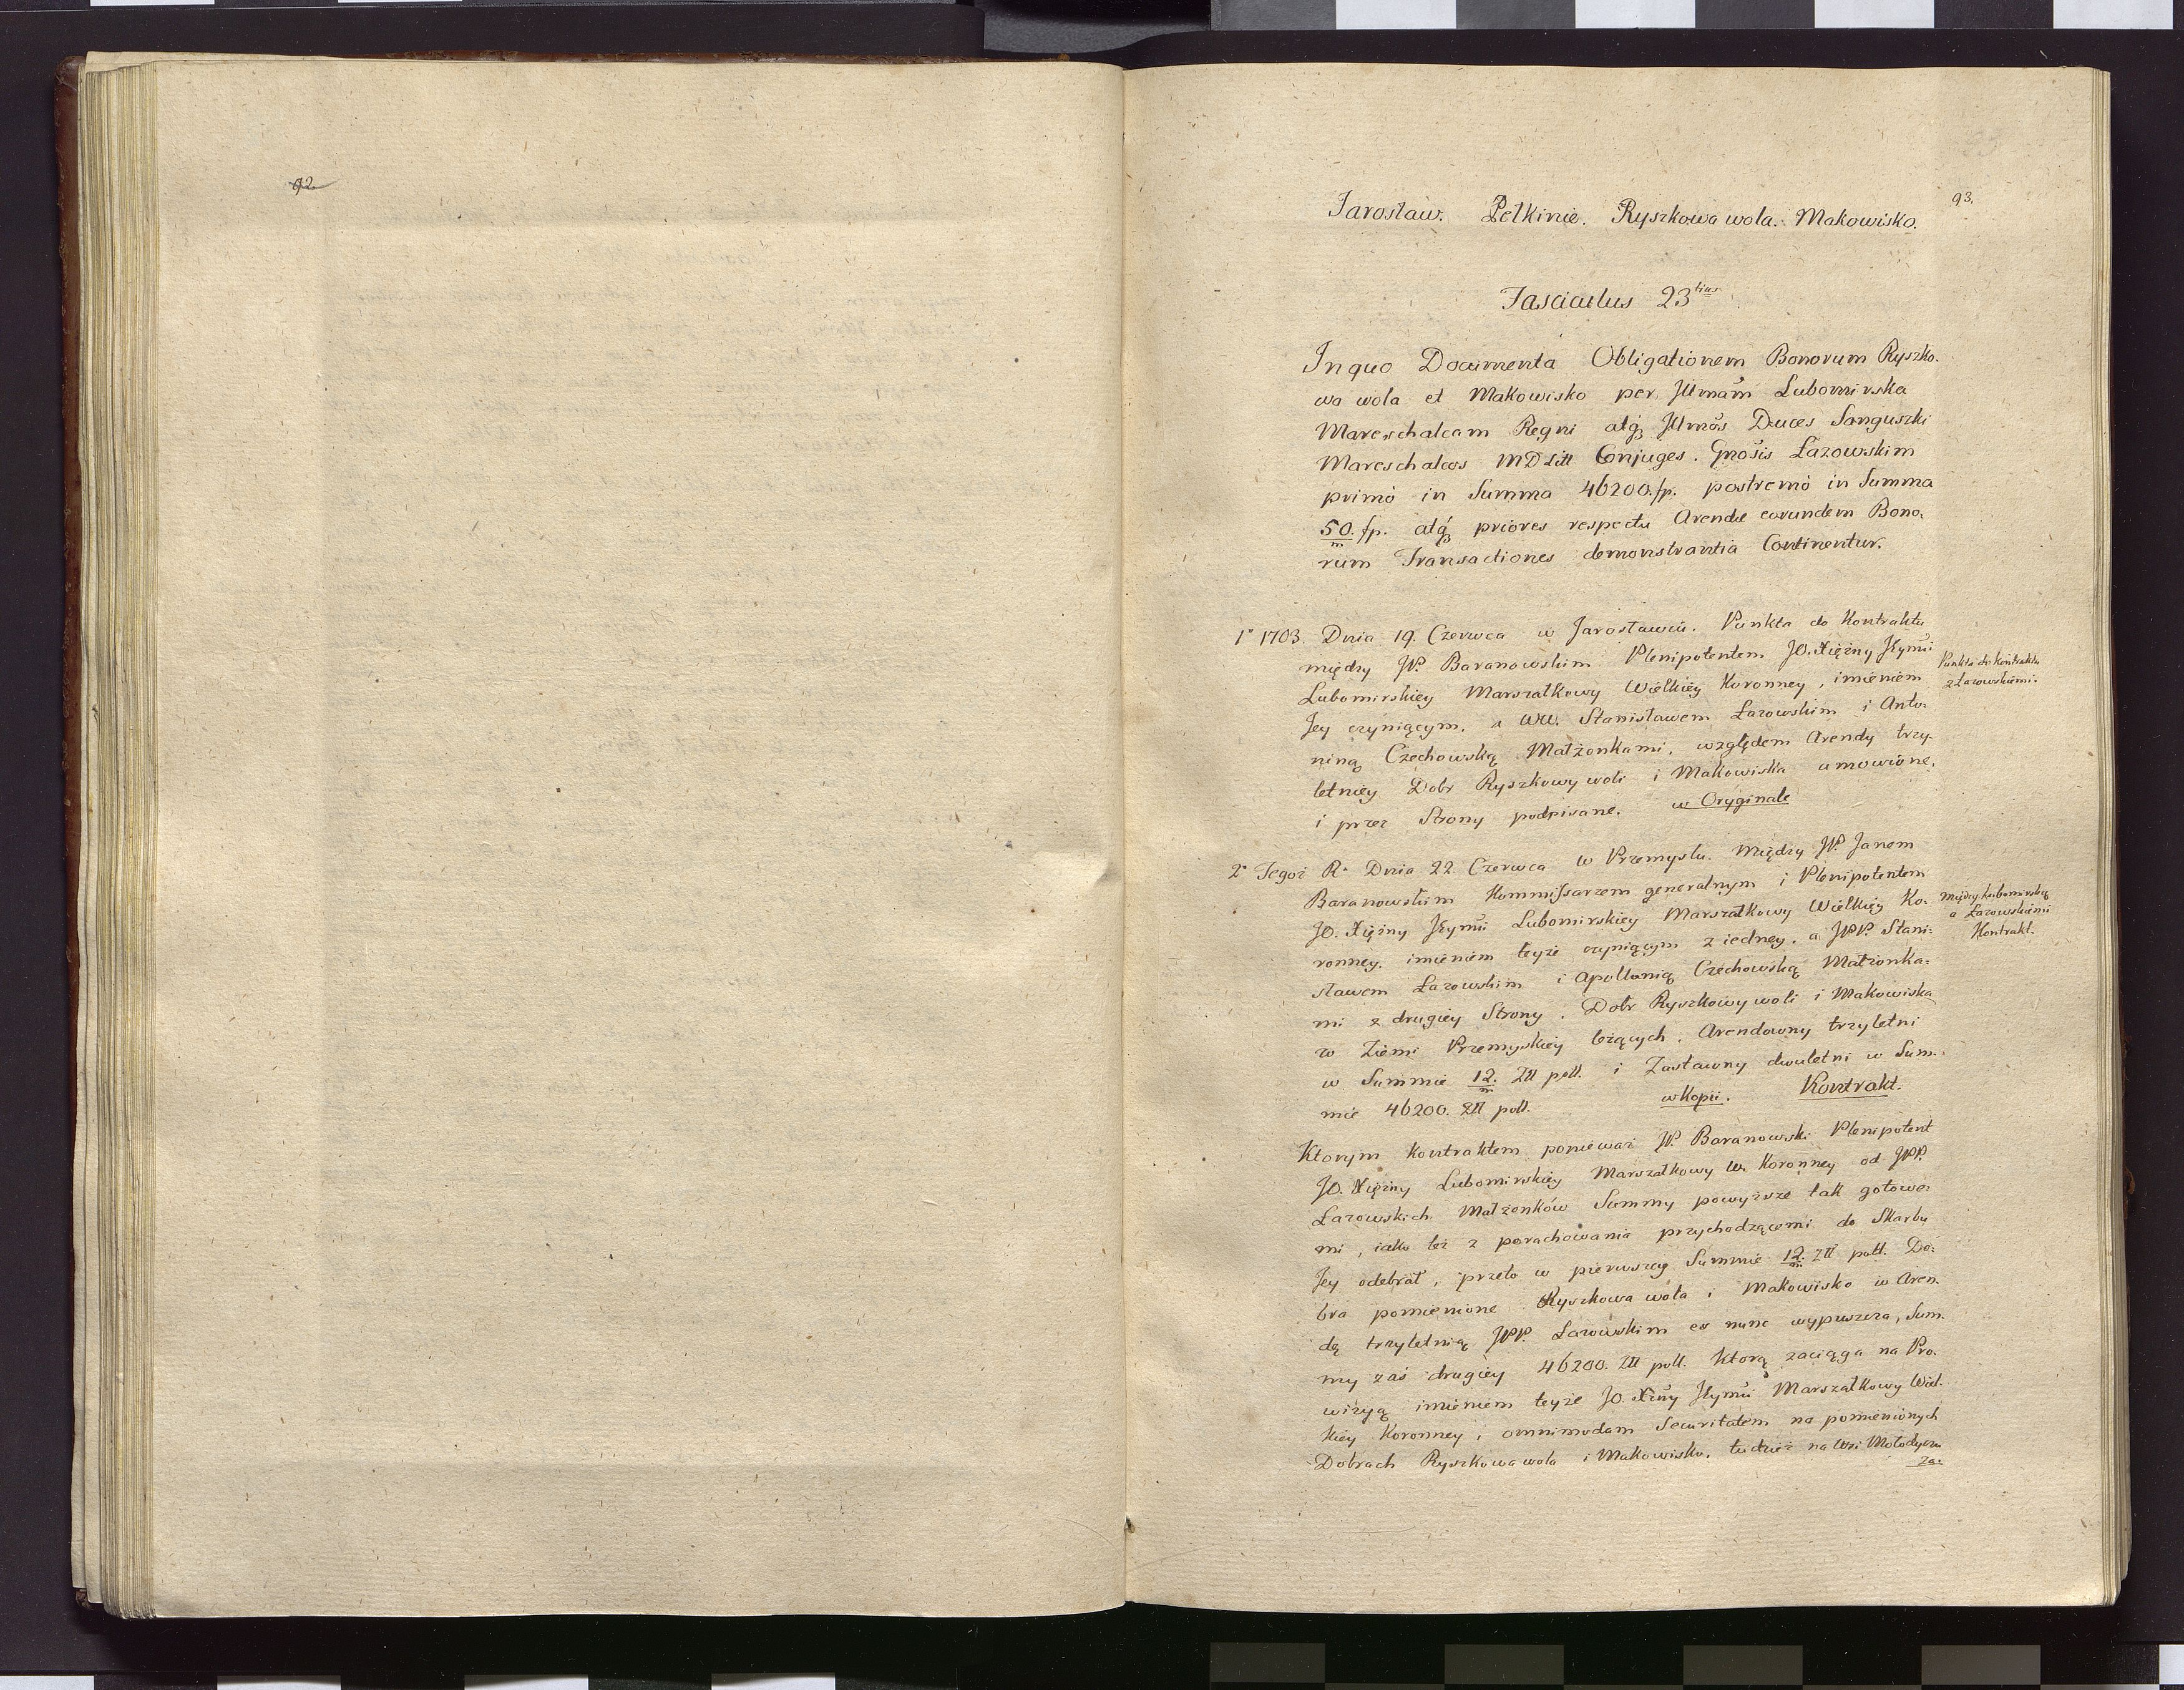 92
93.
Jarosław. Pełkinie. Ryszkowa wola. Makowisko.
Fasciculus 23tius
In quo Documenta Obligationem Bonorum Ryszko-
wa wola et Makowisko per Jllmam Lubomirska
Mareschalcam Regni atq3 Jllmos Duces Sanguszki
Mareschalcos MDLitt Conjuges. Gnosis Łazowskim
primo in Summa 46200. fp. postremo in Summa
50. fp. atq3 priores respectu Arendæ eorundem Bono-
m
rum Transactiones demonstrantia Continentur.
1° 1703. Dnia 19. Czerwca w Jarosławiu. Punkta do Kontraktu
między JP. Baranowskim Plenipotentem JO. Xiężny Jeymci
Lubomirskiey Marszałkowy Wielkiey Koronney, imieniem
Jey czyniącym, a WW. Stanisławem Łazowskim i Anto-
niną Czechowską Małżonkami, względem Arendy trzy-
letniey Dobr Ryszkowy woli i Makowiska umowione,
i przez Strony podpisane. w Oryginale
Punkta do Kontraktu
z Łazowskiemi.
2° Tegoż R° Dnia 22. Czerwca w Przemyslu. Między JP. Janem
Baranowskim Kommissarzem generalnym i Plenipotentem
JO. Xiężny Jeymci Lubomirskiey Marszałkowy Wielkiey Ko-
ronney, imieniem teyże czyniącym z iedney, a JPP. Stani-
sławem Łazowskim i Apollonią Czechowską Małżonka-
mi z drugiey Strony. Dobr Ryszkowy woli i Makowiska
w Ziemi Przemyskiey leżących, Arendowny trzyletni
w Summie 12. Zll poll. i Zastawny dwuletni w Sum-
m
mie 46200. Zll poll. w Kopii. Kontrakt.
Między Lubomirską
a Łazowskiemi
Kontrakt.
Ktorym Kontraktem ponieważ JP. Baranowski Plenipotent
JO. Xiężny Lubomirskiey Marszałkowy W. Koronney od JPP.
Łazowskich Małżonków Summy powyższe tak gotowe-
mi, iako też z porachowania przychodzącemi do Skarbu
Jey odebrał, przeto w pierwszey Summie 12. Zll poll. Do-
m
bra pomienione Ryszkowa wola i Makowisko w Aren-
dę trzyletnią JPP. Łazowskim ex nunc wypuszcza, Sum-
my zaś drugiey 46200. Zll poll. ktorą zaciąga na Pro-
wizyą imieniem teyże JO. Xżny Jeymci Marszałkowy Wiel-
kiey Koronney, omnimodam Securitatem na pomienionych
Dobrach Ryszkowa wola i Makowisko, tudzież na Wsi Mołodycza
za-